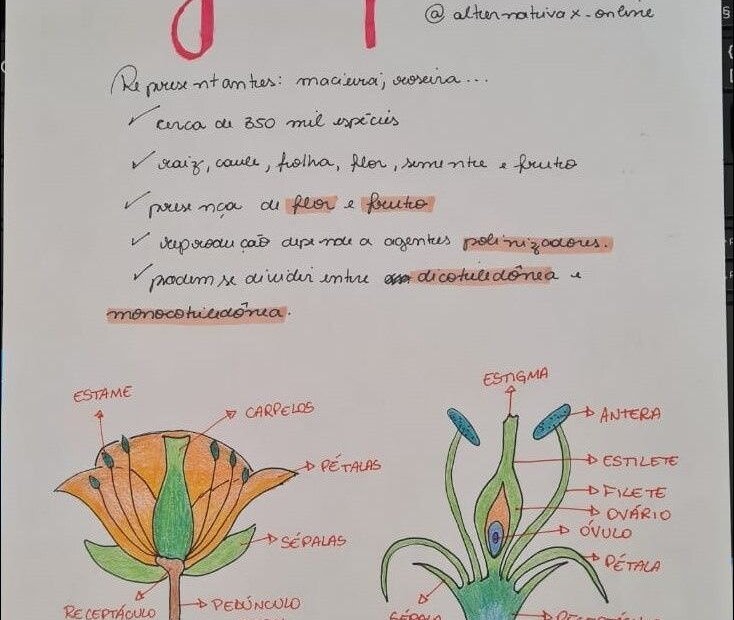 @alternativax_online
Representantes: macieira, roseira...
✓ cerca de 350 mil espécies
✓ raiz, caule, folha, flor, semente e fruto
✓ presença de flor e fruto
✓ reprodução depende a agentes polinizadores.
✓ podem se dividir entre dicotiledônea e
monocotiledônea.
ESTAME
CARPELOS
PÉTALAS
SÉPALAS
RECEPTÁCULO
PEDÚNCULO
ESTIGMA
ANTERA
ESTILETE
FILETE
OVÁRIO
ÓVULO
PÉTALA
SÉPALA